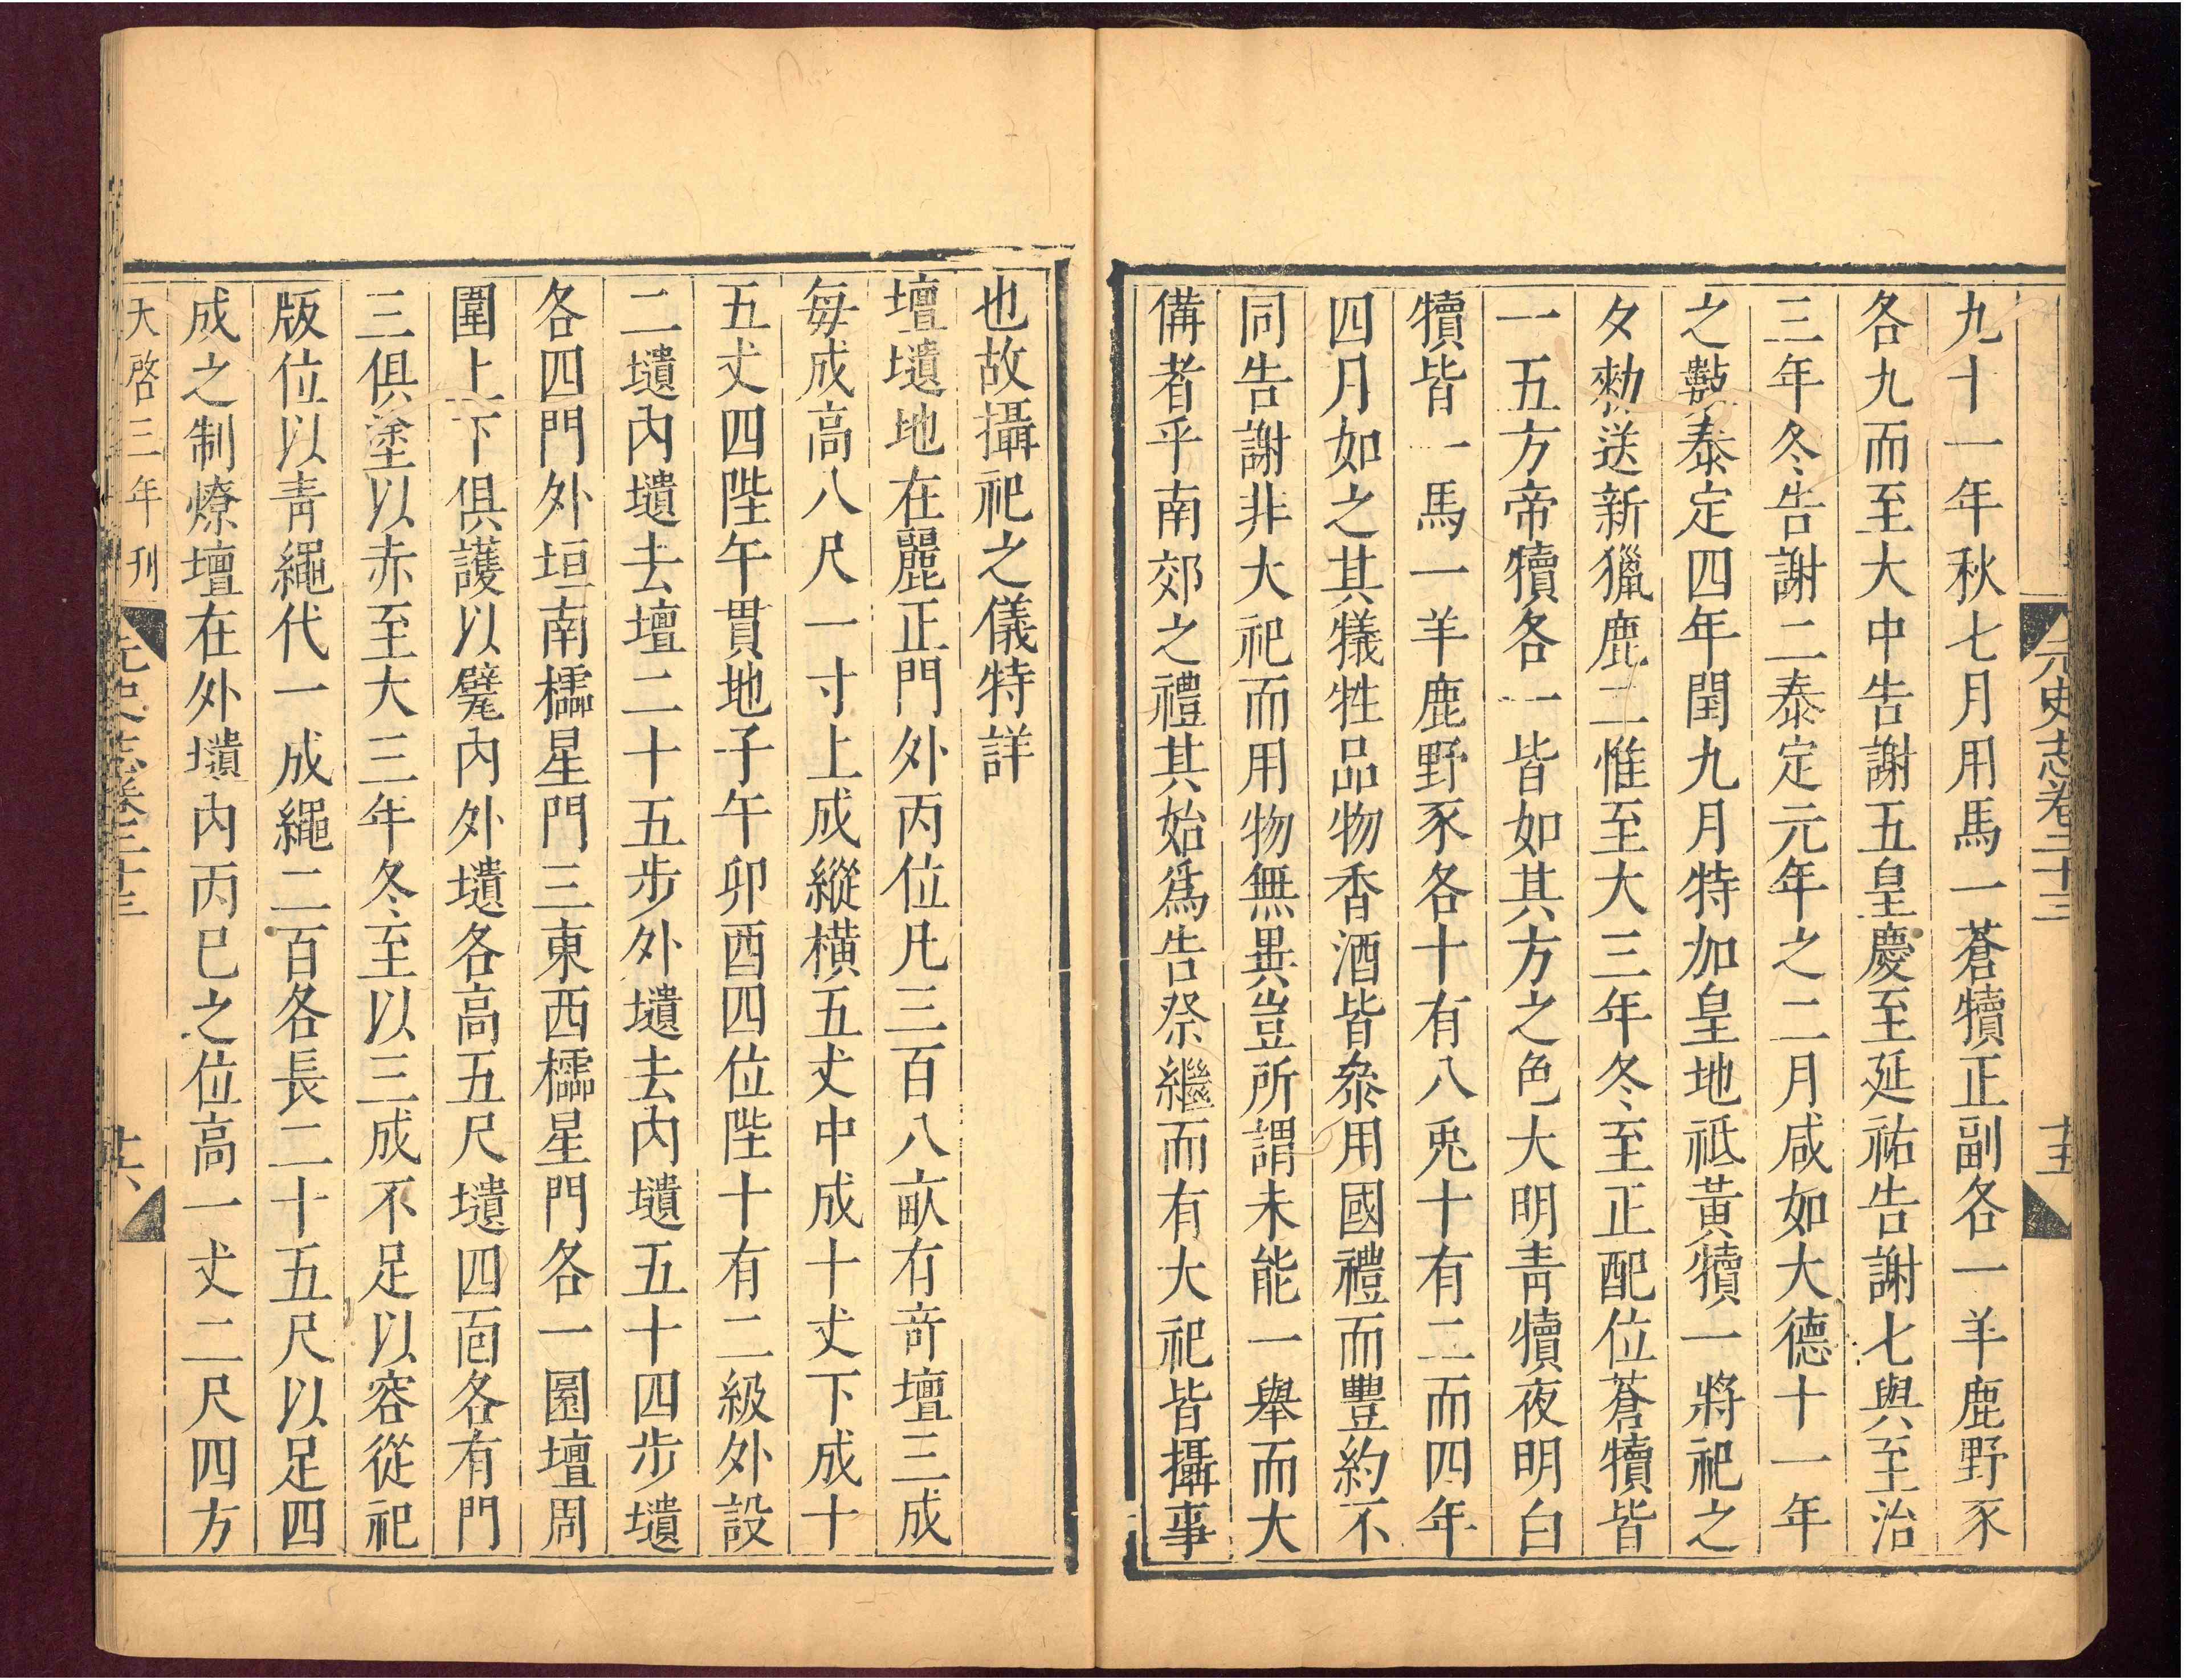 元史志卷二十三
十五
九十一年秋七月用馬一蒼犢正副各一羊鹿野豕
各九而至大中告謝五皇慶至延祐告謝七與至治
三年冬告謝二泰定元年之二月咸如大德十一年
之數泰定四年閏九月特加皇地祇黃犢一將祀之
夕勑送新獵鹿二惟至大三年冬至正配位蒼犢皆
一五方帝犢各一皆如其方之色大明青犢夜明白
犢皆一馬一羊鹿野豕各十有八兎十有二而四年
四月如之其犧牲品物香酒皆叅用國禮而豐約不
同告謝非大祀而用物無異豈所謂未能一舉而大
備者乎南郊之禮其始爲告祭繼而有大祀皆攝事
也故攝祀之儀特詳
壇壝地在麗正門外丙位凡三百八畝有奇壇三成
每成高八尺一寸上成縱橫五丈中成十丈下成十
五丈四陛午貫地子午卯酉四位陛十有二級外設
二壝內壝去壇二十五步外壝去內壝五十四步壝
各四門外垣南櫺星門三東西櫺星門各一圜壇周
圍上下俱護以甓內外壝各高五尺壝四面各有門
三俱塗以赤至大三年冬至以三成不足以容從祀
版位以青繩代一成繩二百各長二十五尺以足四
成之制燎壇在外壝內丙巳之位高一丈二尺四方
天啓三年刊
元史志卷二十三
十六